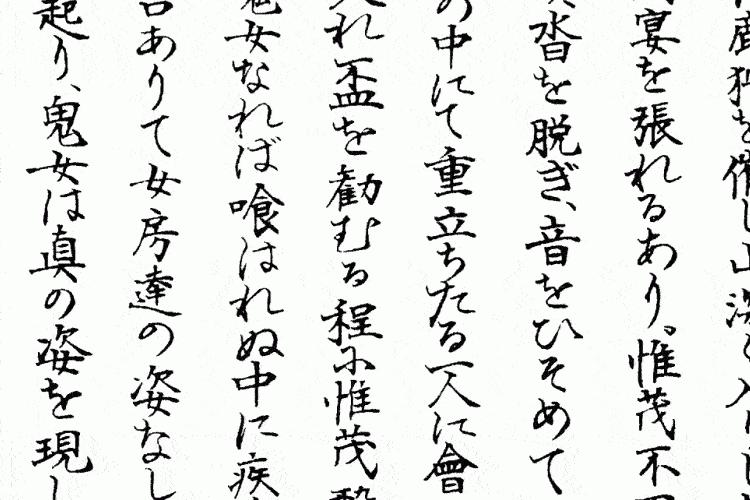 鹿狩を催し山深く入
宴を張れるあり。惟茂不
沓を脱ぎ、音をひそめて
の中にて重立ちたる一人に會
れ盃を勧むる程に惟茂酔
鬼女なれば喰はれぬ中に疾
ありて女房達の姿なし
起り、鬼女は真の姿を現し